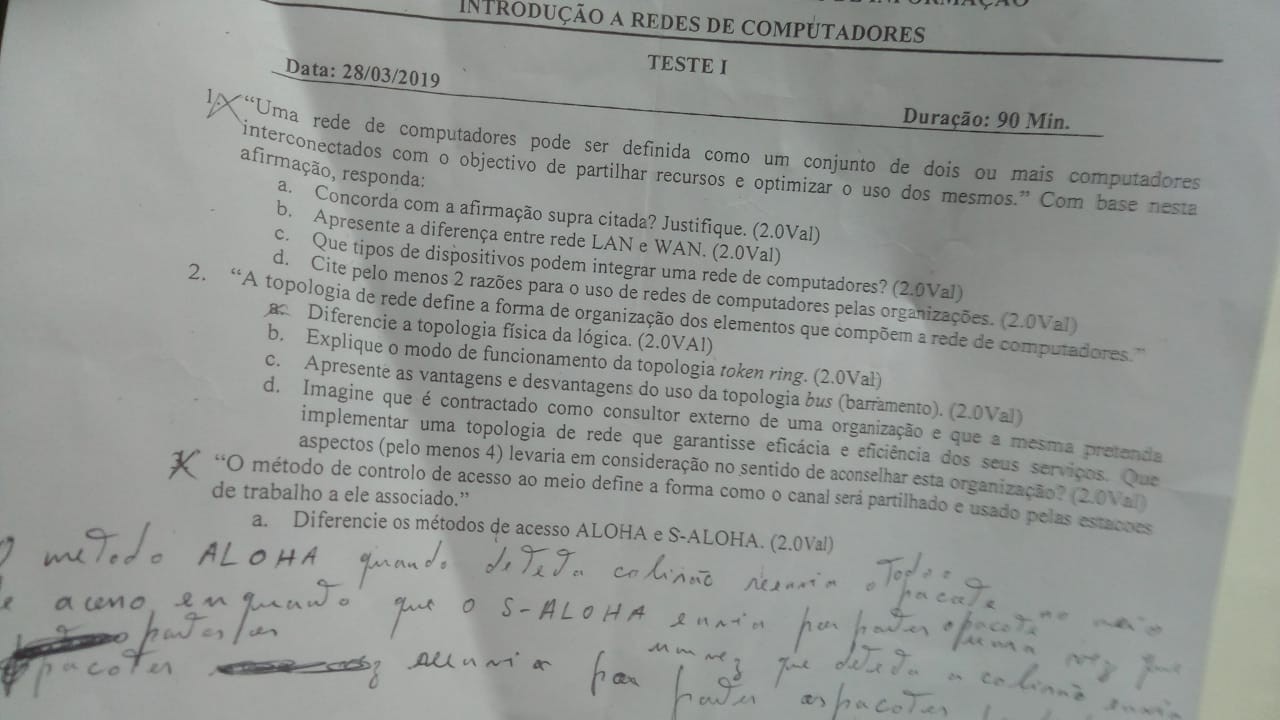 INTRODUÇÃO A REDES DE COMPUTADORES
TESTE I
Data: 28/03/2019
Duração: 90 Min.
1. “Uma rede de computadores pode ser definida como um conjunto de dois ou mais computadores
interconectados com o objectivo de partilhar recursos e optimizar o uso dos mesmos.” Com base nesta
afirmação, responda:
a. Concorda com a afirmação supra citada? Justifique. (2.0Val)
b. Apresente a diferença entre rede LAN e WAN. (2.0Val)
c. Que tipos de dispositivos podem integrar uma rede de computadores? (2.0Val)
d. Cite pelo menos 2 razões para o uso de redes de computadores pelas organizações. (2.0Val)
2. “A topologia de rede define a forma de organização dos elementos que compõem a rede de computadores.”
a. Diferencie a topologia física da lógica. (2.0VAl)
b. Explique o modo de funcionamento da topologia token ring. (2.0Val)
c. Apresente as vantagens e desvantagens do uso da topologia bus (barramento). (2.0Val)
d. Imagine que é contractado como consultor externo de uma organização e que a mesma pretenda
implementar uma topologia de rede que garantisse eficácia e eficiência dos seus serviços. Que
aspectos (pelo menos 4) levaria em consideração no sentido de aconselhar esta organização? (2.0Val)
3. “O método de controlo de acesso ao meio define a forma como o canal será partilhado e usado pelas estacoes
de trabalho a ele associado.”
a. Diferencie os métodos de acesso ALOHA e S-ALOHA. (2.0Val)
O metodo ALOHA quando deteta colisão reenvia todo o pacote no meio
enquanto que o S-ALOHA envia por partes o pacote uma vez que
pacotes reenvia por partes os pacotes
uma vez que deteta a colisão envia